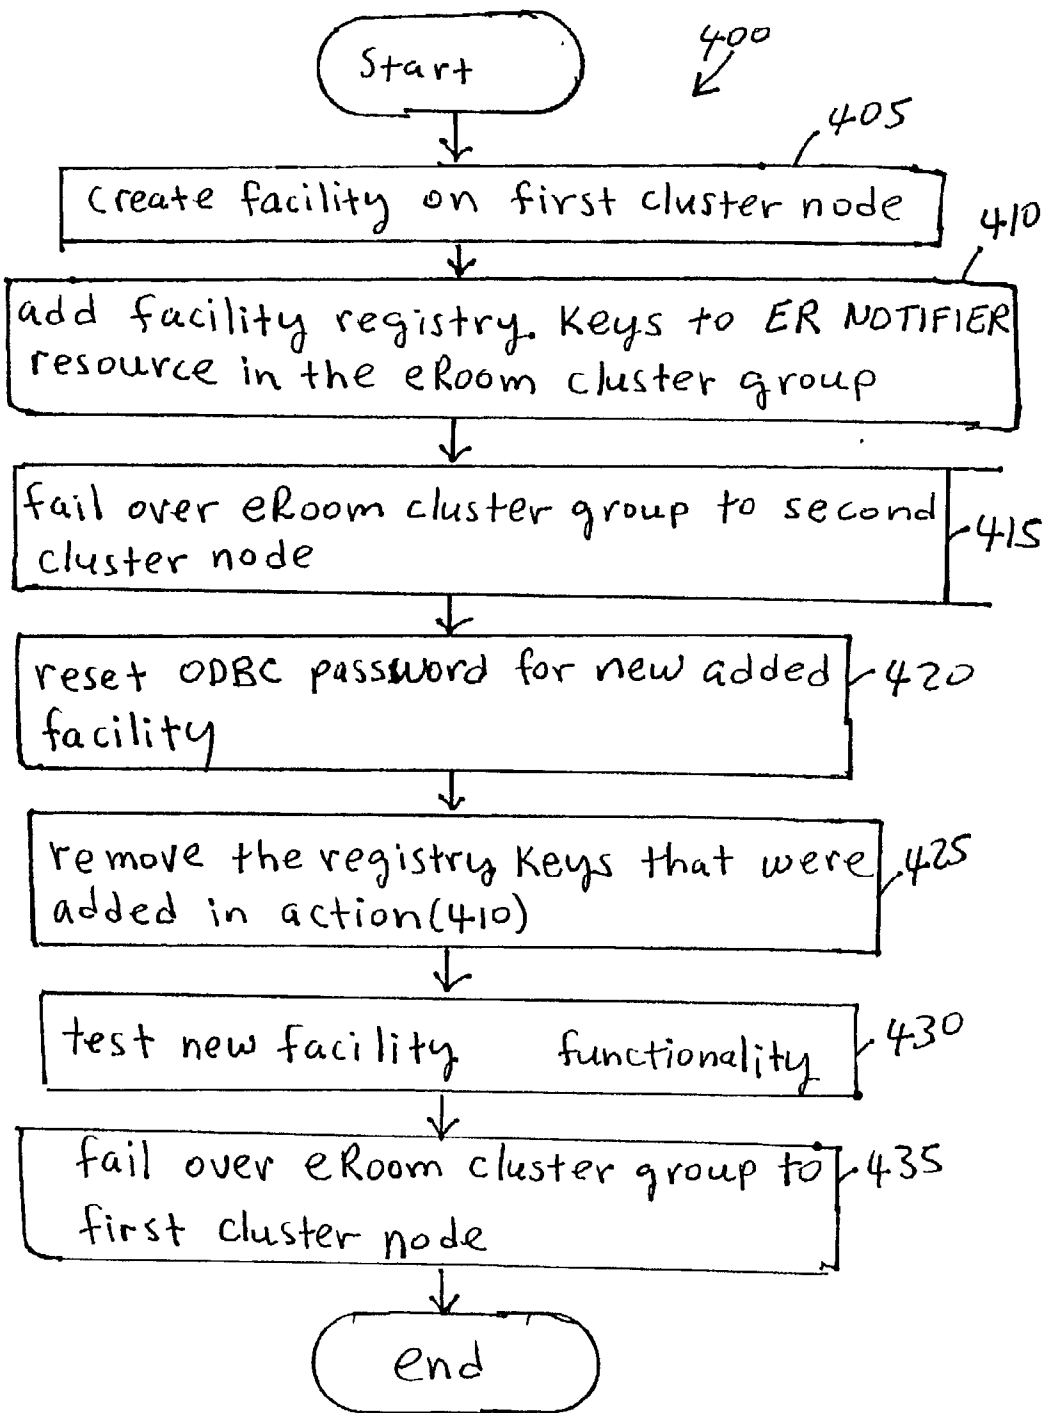 Start
400
405
create facility on first cluster node
410
add facility registry. Keys to ER NOTIFIER
resource in the eRoom cluster group
fail over eRoom cluster group to second
cluster node
415
reset ODBC password for new added
facility
420
remove the registry Keys that were
added in action (410)
425
test new facility functionality
430
fail over eRoom cluster group to
first cluster node
435
end